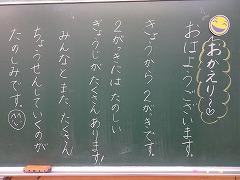 おかえり〜
おはようございます。
きょうから2がっきです。
2がっきにはたのしい
ぎょうじがたくさんあります!
みんなとまた、たくさん
ちょうせんしていくのが
たのしみです。